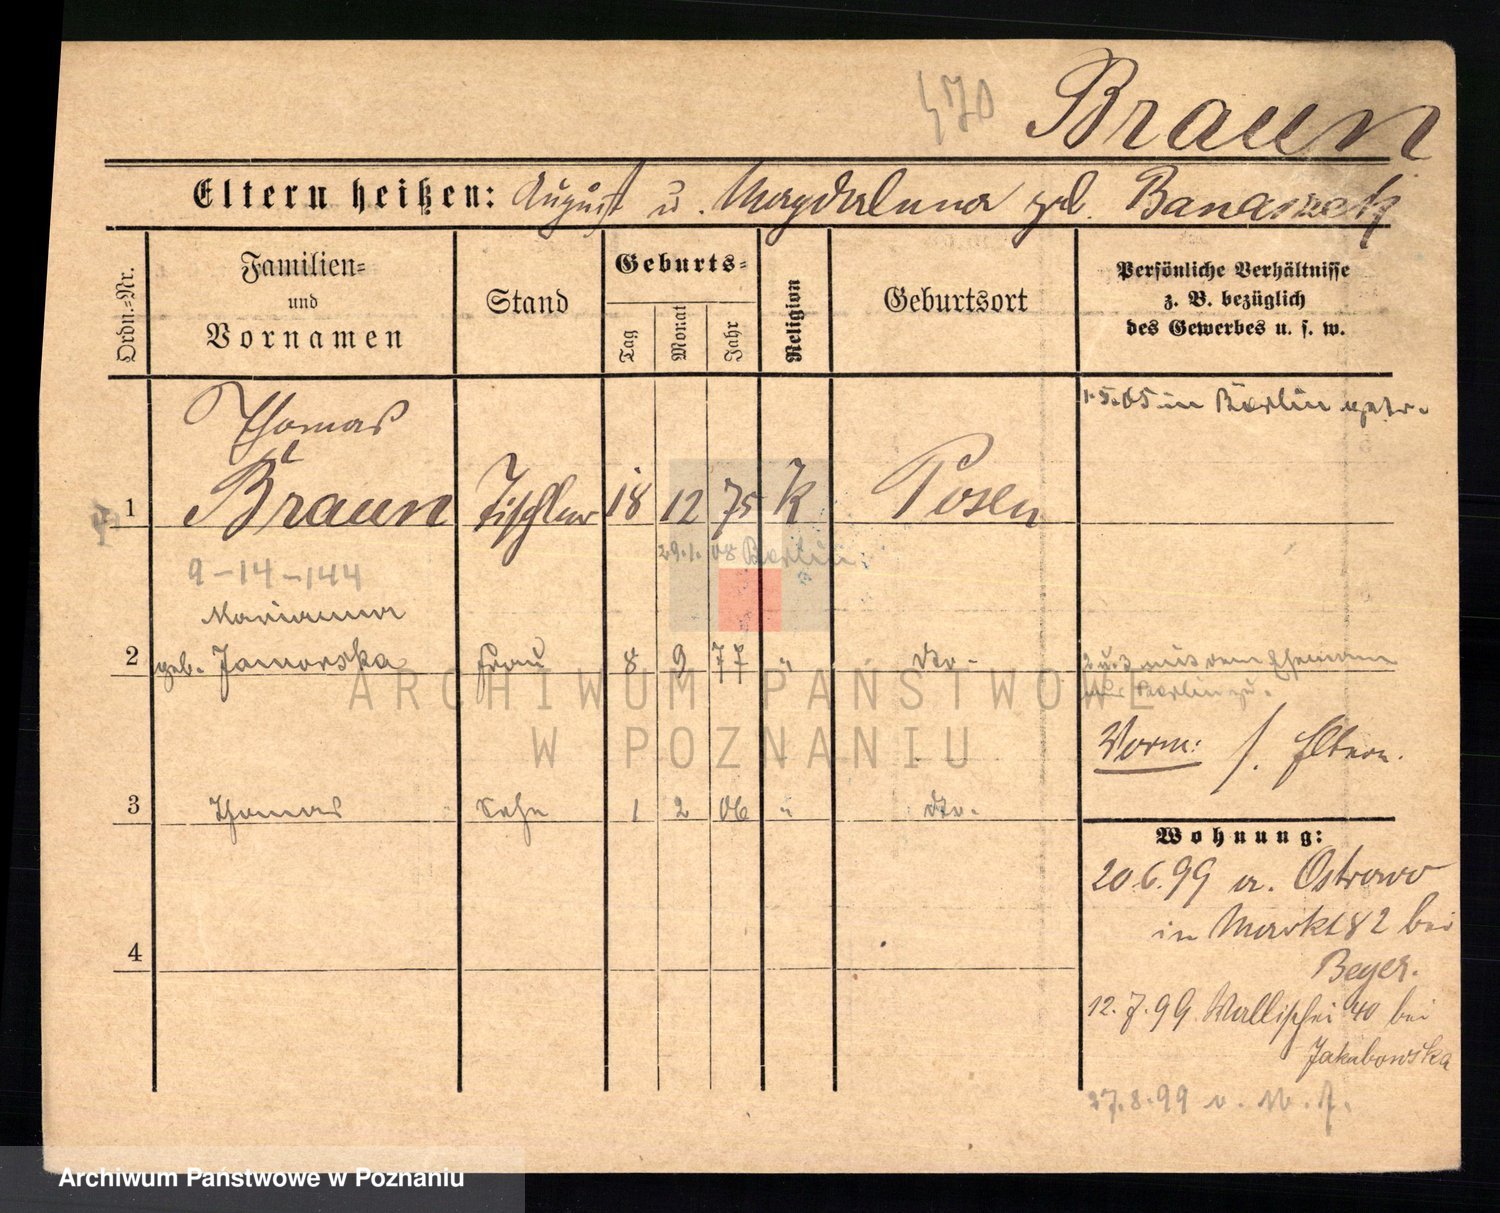 470
Braun
Eltern heißen: August u. Magdalena geb. Banaszek
Ordn.=Nr.
Familien=
und
Vornamen
Stand
Geburts=
Tag
Monat
Jahr
Religion
Geburtsort
Persönliche Verhältnisse
z. B. bezüglich
des Gewerbes u. s. w.
Thomas
1 Braun Tischler 18 12 75 k Posen
1.5.05 in Berlin
29.1.08 Berlin.
9-14-144
Marianna
2 geb. Jaworska Frau 8 2 77 " do.
2 u. 3 mit dem Ehemann
Berlin
Vorm: s. Eltern.
3 Thomas Sohn 1 2 06 " do.
4
Wohnung:
20.6.99 a. Ostrowo
in Markt 82 bei
Beyer.
12.7.99 Wallischei 40 bei
Jakubowska
27.8.99 v.
ARCHIWUM PAŃSTWOWE
W POZNANIU
Archiwum Państwowe w Poznaniu